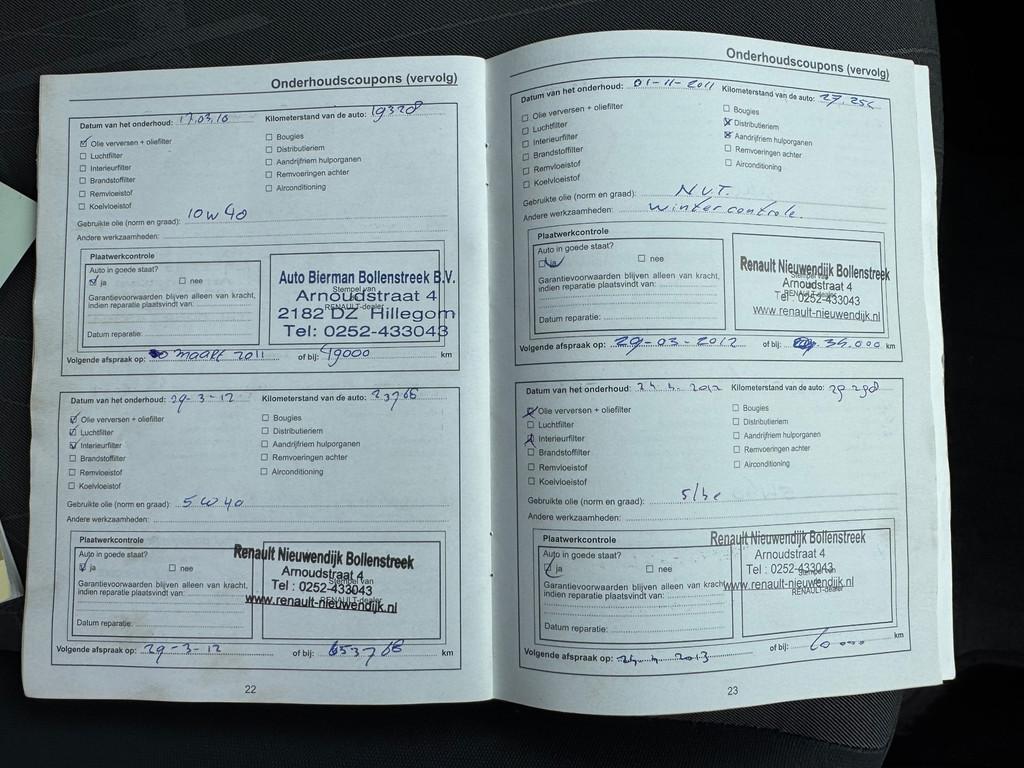 Onderhoudscoupons (vervolg)
Datum van het onderhoud: 17.03.10 Kilometerstand van de auto: 19328
Olie verversen + oliefilter
Luchtfilter
Interieurfilter
Brandstoffilter
Remvloeistof
Koelvloeistof
Bougies
Distributieriem
Aandrijfriem hulporganen
Remvoeringen achter
Airconditioning
Gebruikte olie (norm en graad): 10W40
Andere werkzaamheden:
Plaatwerkcontrole
Auto in goede staat?
ja nee
Garantievoorwaarden blijven alleen van kracht,
indien reparatie plaatsvindt van:
Datum reparatie:
Stempel van
RENAULT-dealer
Auto Bierman Bollenstreek B.V.
Arnoudstraat 4
2182 DZ Hillegom
Tel: 0252-433043
Volgende afspraak op: maart 2011 of bij: 49000 km
Datum van het onderhoud: 29-3-12 Kilometerstand van de auto: 23766
Olie verversen + oliefilter
Luchtfilter
Interieurfilter
Brandstoffilter
Remvloeistof
Koelvloeistof
Bougies
Distributieriem
Aandrijfriem hulporganen
Remvoeringen achter
Airconditioning
Gebruikte olie (norm en graad): 5W40
Andere werkzaamheden:
Plaatwerkcontrole
Auto in goede staat?
ja nee
Garantievoorwaarden blijven alleen van kracht,
indien reparatie plaatsvindt van:
Datum reparatie:
Stempel van
RENAULT-dealer
Renault Nieuwendijk Bollenstreek
Arnoudstraat 4
Tel : 0252-433043
www.renault-nieuwendijk.nl
Volgende afspraak op: 29-3-12 of bij: 53766 km
22
Onderhoudscoupons (vervolg)
Datum van het onderhoud: 01-11-2011 Kilometerstand van de auto:
Olie verversen + oliefilter
Luchtfilter
Interieurfilter
Brandstoffilter
Remvloeistof
Koelvloeistof
Bougies
Distributieriem
Aandrijfriem hulporganen
Remvoeringen achter
Airconditioning
Gebruikte olie (norm en graad): N.V.T.
Andere werkzaamheden: wintercontrole.
Plaatwerkcontrole
Auto in goede staat?
ja nee
Garantievoorwaarden blijven alleen van kracht,
indien reparatie plaatsvindt van:
Datum reparatie:
Stempel van
RENAULT-dealer
Renault Nieuwendijk Bollenstreek
Arnoudstraat 4
Tel : 0252-433043
www.renault-nieuwendijk.nl
Volgende afspraak op: 29-03-2012 of bij: 35.000 km
Datum van het onderhoud: 24.4.2012 Kilometerstand van de auto: 29298
Olie verversen + oliefilter
Luchtfilter
Interieurfilter
Brandstoffilter
Remvloeistof
Koelvloeistof
Bougies
Distributieriem
Aandrijfriem hulporganen
Remvoeringen achter
Airconditioning
Gebruikte olie (norm en graad):
Andere werkzaamheden:
Plaatwerkcontrole
Auto in goede staat?
ja nee
Garantievoorwaarden blijven alleen van kracht,
indien reparatie plaatsvindt van:
Datum reparatie:
Stempel van
RENAULT-dealer
Renault Nieuwendijk Bollenstreek
Arnoudstraat 4
Tel : 0252-433043
www.renault-nieuwendijk.nl
Volgende afspraak op: 24.4.2013 of bij: km
23